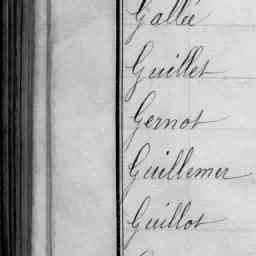 Gallée
Guillet
Gernot
Guillemer
Guillot